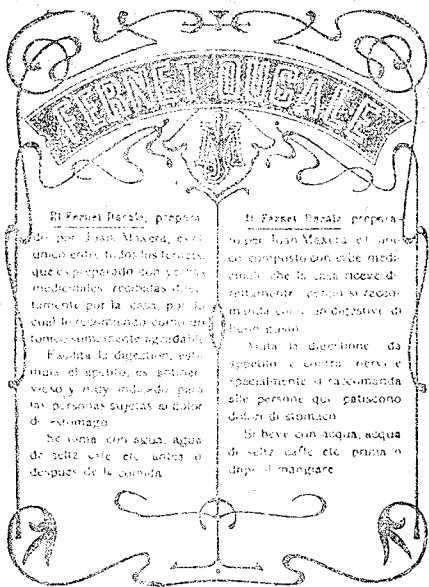 FERNET DUCALE
El Fernet Ducale, prepara-
do por Juan Maxera, es el
unico entre todos los fernets,
que es preparado con yerbas
medicinales recibidas direc-
tamente por la casa, por lo
cual lo recomiendo como un
tonico sumamente agradable
Facilita la digestion, esti-
mula el apetito, es antiner-
vioso y muy indicado para
las personas sujetas al dolor
de estomago
Se toma con agua, agua
de seltz cafe etc antes o
despues de la comida
Il Fernet Ducale prepara-
to per Juan Maxera è l' uni-
co composto con erbe medi-
cinali che la casa riceve di-
rettamente perciò si racco-
manda come un digestivo di
buon gusto
Aiuta la digestione da
appetito è contra nervi e
specialmente si raccomanda
alle persone que patiscono
dolori di stomaco
Si beve con acqua, acqua
di seltz caffe etc prima o
dopo il mangiare